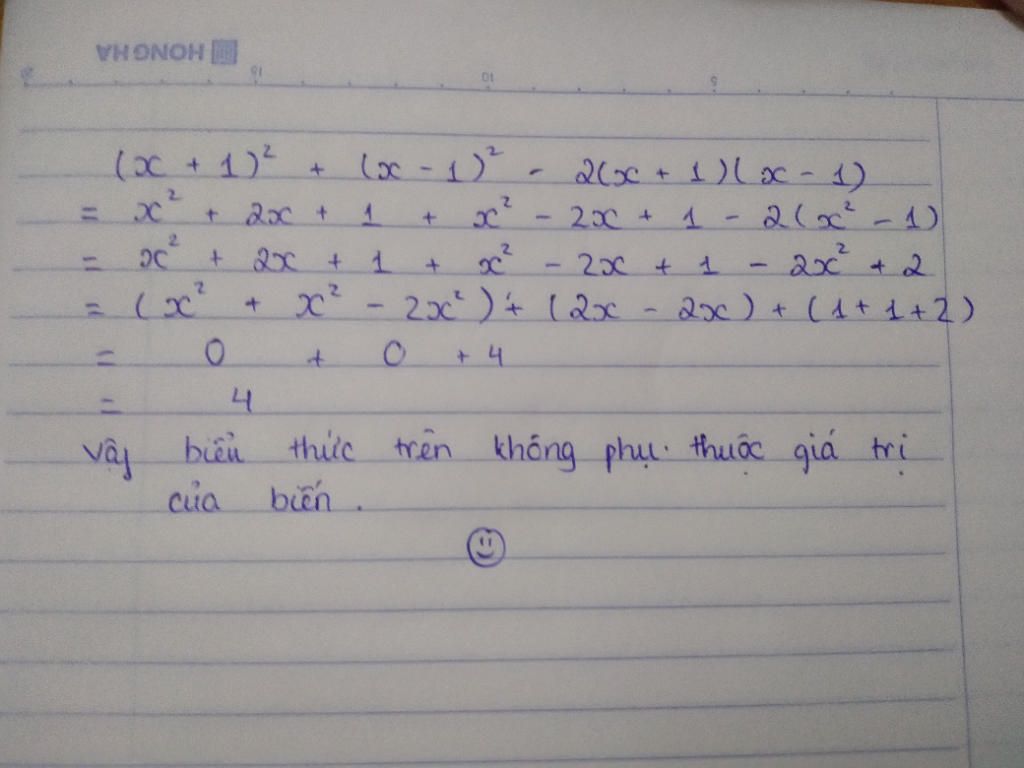 HONG HA
10
(x + 1)² + (x - 1)² - 2(x + 1)(x - 1)
= x² + 2x + 1 + x² - 2x + 1 - 2(x² - 1)
= x² + 2x + 1 + x² - 2x + 1 - 2x² + 2
= (x² + x² - 2x²) + (2x - 2x) + (1 + 1 + 2)
= 0 + 0 + 4
= 4
Vậy biểu thức trên không phụ thuộc giá trị
của biến.